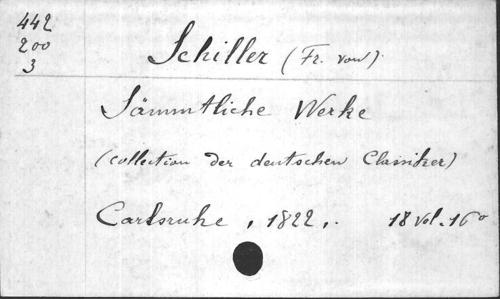 442
200
3
Schiller (Fr. von).
Sämmtliche Werke
(Collection der deutschen Classiker)
Carlsruhe, 1822,. 18 vol. 16°